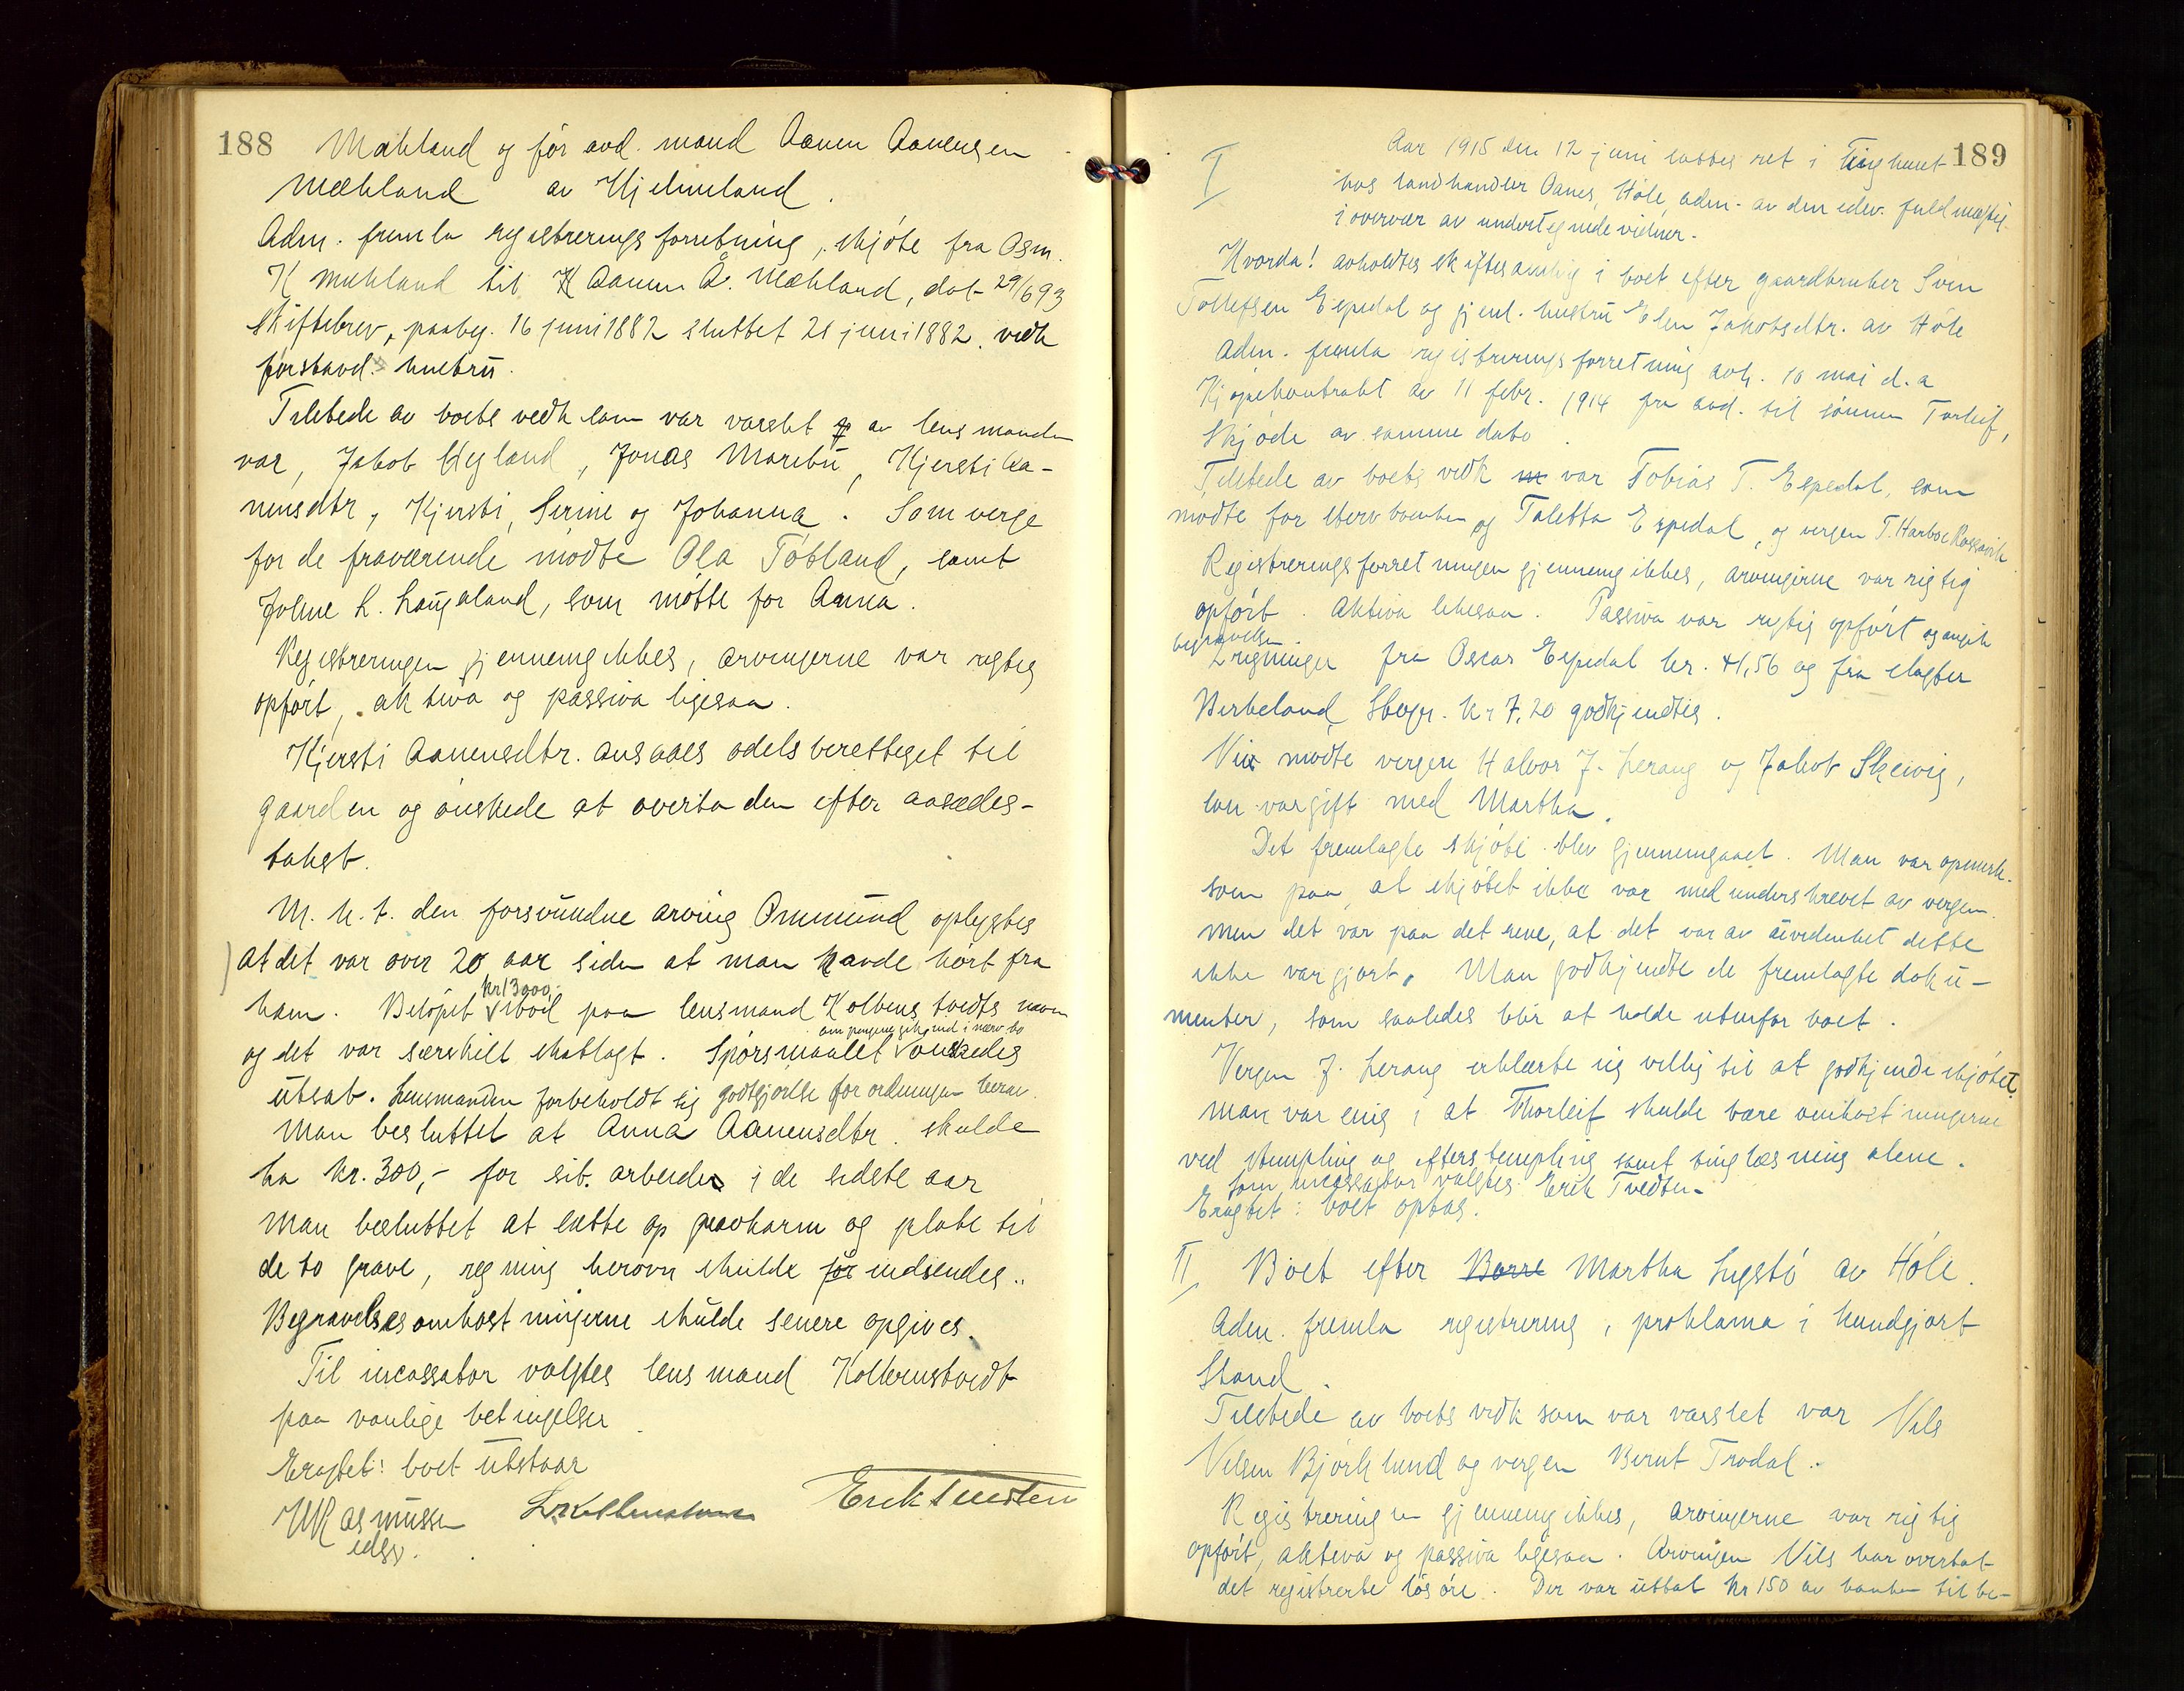 188
Mæhland og før avd. mand Aanen Aanensen
Mæhland av Hjelmeland.
Adm. fremla registreringsforretning, skjøte fra Osm.
K Mæhland til Aanen A. Mæhland, dat 29/6 93
skiftebrev, paabeg. 16 juni 1882 sluttet 21 juni 1882. vedk
førstavd. hustru.
Tilstede av boets vedk som var varslet av lensmanden
var, Jakob Hyland, Jonas Maribu, Kjersti Aa-
nensdtr, Kjersti, Serine og Johanna. Som verge
for de fraværende mødte Ola Tøtland, samt
L. Laugaland, som møtte for Anna.
Registreringen gjennemgikkes, arvingerne var rigtig
opført, aktiva og passiva ligesaa.
Kjersti Aanensdtr. ansaaes odelsberettiget til
gaarden og ønskede at overta den efter aasædes-
takst.
M. h. t. den forsvundne arving Ommund oplystes
at det var over 20 aar siden at man havde hørt fra
ham. Beløpet kr 1300,- stod paa lensmand Kolbenstvedts navn
og det var særskilt skatlagt. Spørsmaalet om pengene gik ind i nærv. bo ønskedes
utsat. Lensmanden forbeholdt sig godtgjørelse for ordningen herav.
Man besluttet at Anna Aanensdtr. skulde
ha kr. 300,- for sit arbeide i de sidste aar
Man besluttet at sætte op gravkarm og plate til
de to grave, regning herover skulde indsendes.
Begravelsesomkostningerne skulde senere opgives.
Til incassator valgtes lensmand Kolbenstvedt
paa vanlige betingelser.
Eragtet: boet utstaar
Rasmussen
edsv.
Erik Tvedten
189
I
Aar 1915 den 12 juni sattes ret i Tinghuset
hos landhandler Oanes, Høle, adm. av den edsv. fuldmægtig
i overvær av undertegnede vidner.
Hvorda! avholdtes skiftesamling i boet efter gaardbruker Sven
Tollefsen Espedal og gjenl. hustru Elen Jakobsdtr. av Høle
Adm. fremla registreringsforretning avh. 10 mai d.a
Kjøpekontrakt av 11 febr. 1914 fra avd. til sønnen Torleif,
Skjøde av samme dato.
Tilstede av boets vedk var Tobias T. Espedal, som
mødte for stervboenken og Taletta Espedal, og vergen T. Rossavik
Registreringsforretningen gjennemgikkes, arvingerne var rigtig
opført. Aktiva likesaa. Passiva var rigtig opført og angik
begravelsen.
2 regninger fra Oscar Espedal kr. 41,56 og fra slagter
Birkeland, Stvgr. kr 7,20 godkjendtes.
Vier mødte vergen Halvor J. Lerang og Jakob Skeivig,
som var gift med Martha.
Det fremlagte skjøte blev gjennemgaaet. Man var opmerk-
som paa, at skjøtet ikke var medunderskrevet av vergen
men det var paa det rene, at det var av uvidenhet dette
ikke var gjort. Man godkjendte de fremlagte doku-
menter, som saaledes blir at holde utenfor boet.
Vergen J. Lerang erklærte sig villig til at godkjende skjøtet.
man var enig i at Thorleif skulde bære omkostningerne
ved stempling og efterstempling samt tinglæsning alene.
Som incassator valgtes Erik Tvedten.
Eragtet: boet optas.
II Boet efter Børre Martha Lysstø av Høle.
Adm. fremla registrering, proklama i kundgjort
Stand.
Tilstede av boets vedk som var varslet var Nils
Nilsen Bjørklund og vergen Bernt Trodal.
Registreringen gjennemgikkes, arvingerne var rigtig
opført, aktiva og passiva ligesaa. Arvingen Nils har overtat
det registrerte løsøre. Der var uttat kr 150 av banken til be-